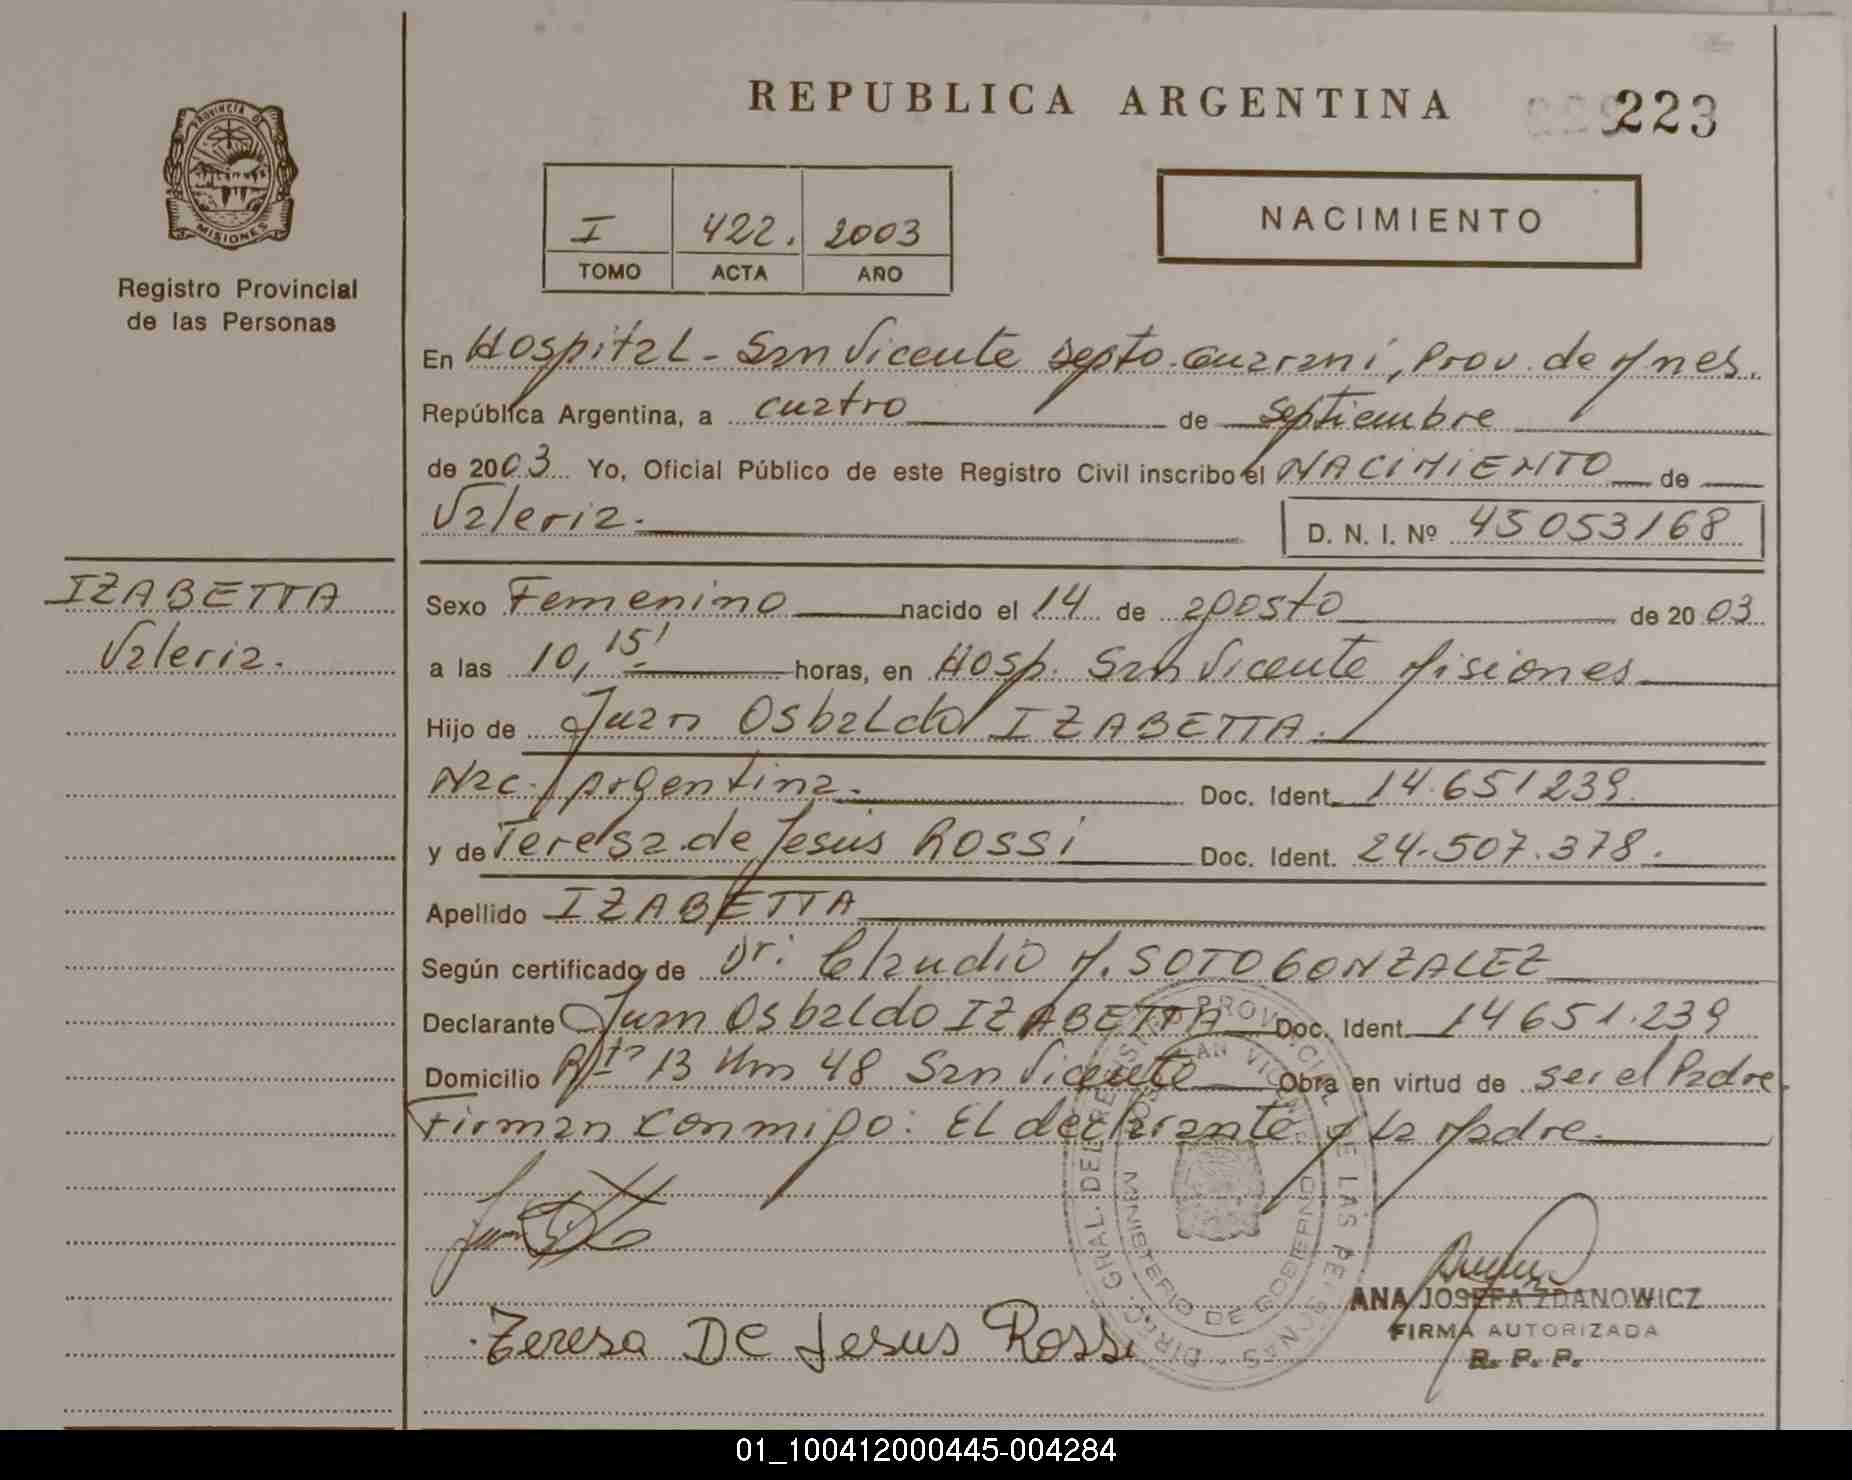 REPUBLICA ARGENTINA
223
PROVINCIA DE
MISIONES
Registro Provincial
de las Personas
I 422. 2003
TOMO ACTA AÑO
NACIMIENTO
En Hospital - San Vicente Depto. Guaraní, Prov. de Mnes.
República Argentina, a cuatro de Septiembre
de 2003 Yo, Oficial Público de este Registro Civil inscribo el NACIMIENTO de
Valeria. D. N. I. Nº 45053168
IZABETTA
Valeria.
Sexo Femenino nacido el 14 de agosto de 2003
a las 10,15' horas, en Hosp. San Vicente Misiones
Hijo de Juan Osbaldo IZABETTA.
Nac. Argentina. Doc. Ident. 14.651239.
y de Teresa de Jesús ROSSI Doc. Ident. 24.507.378.
Apellido IZABETTA
Según certificado de Dr. Claudio M. SOTO GONZALEZ
Declarante Juan Osbaldo IZABETTA Doc. Ident. 14651.239
Domicilio Rta 13 Km 48 San Vicente Obra en virtud de ser el Padre.
Firman conmigo: El declarante y la Madre.
DIREC. GRAL. DEL REGISTRO PROVINCIAL DE LAS PERSONAS
MINISTERIO DE GOBIERNO
Teresa De Jesus Rossi
ANA JOSEFA ZDANOWICZ
FIRMA AUTORIZADA
R. P. P.
01_100412000445-004284